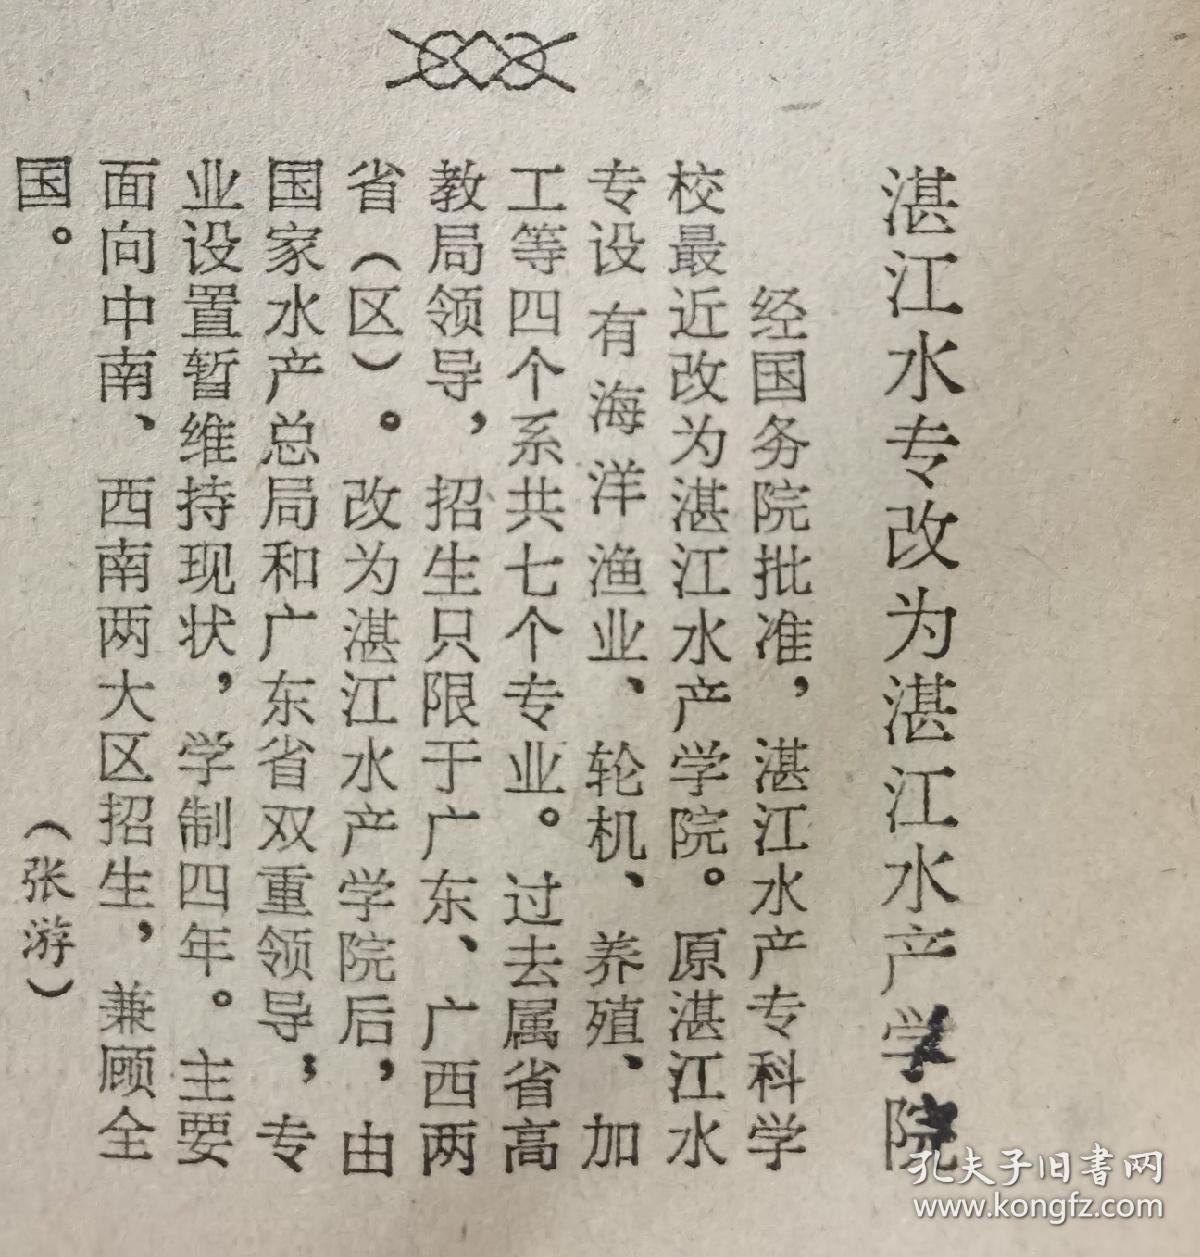 湛江水专改为湛江水产学院
经国务院批准，湛江水产专科学
校最近改为湛江水产学院。原湛江水
专设有海洋渔业、轮机、养殖、加
工等四个系共七个专业。过去属省高
教局领导，招生只限于广东、广西两
省（区）。改为湛江水产学院后，由
国家水产总局和广东省双重领导，专
业设置暂维持现状，学制四年。主要
面向中南、西南两大区招生，兼顾全
国。
（张游）
孔夫子旧书网
www.kongfz.com